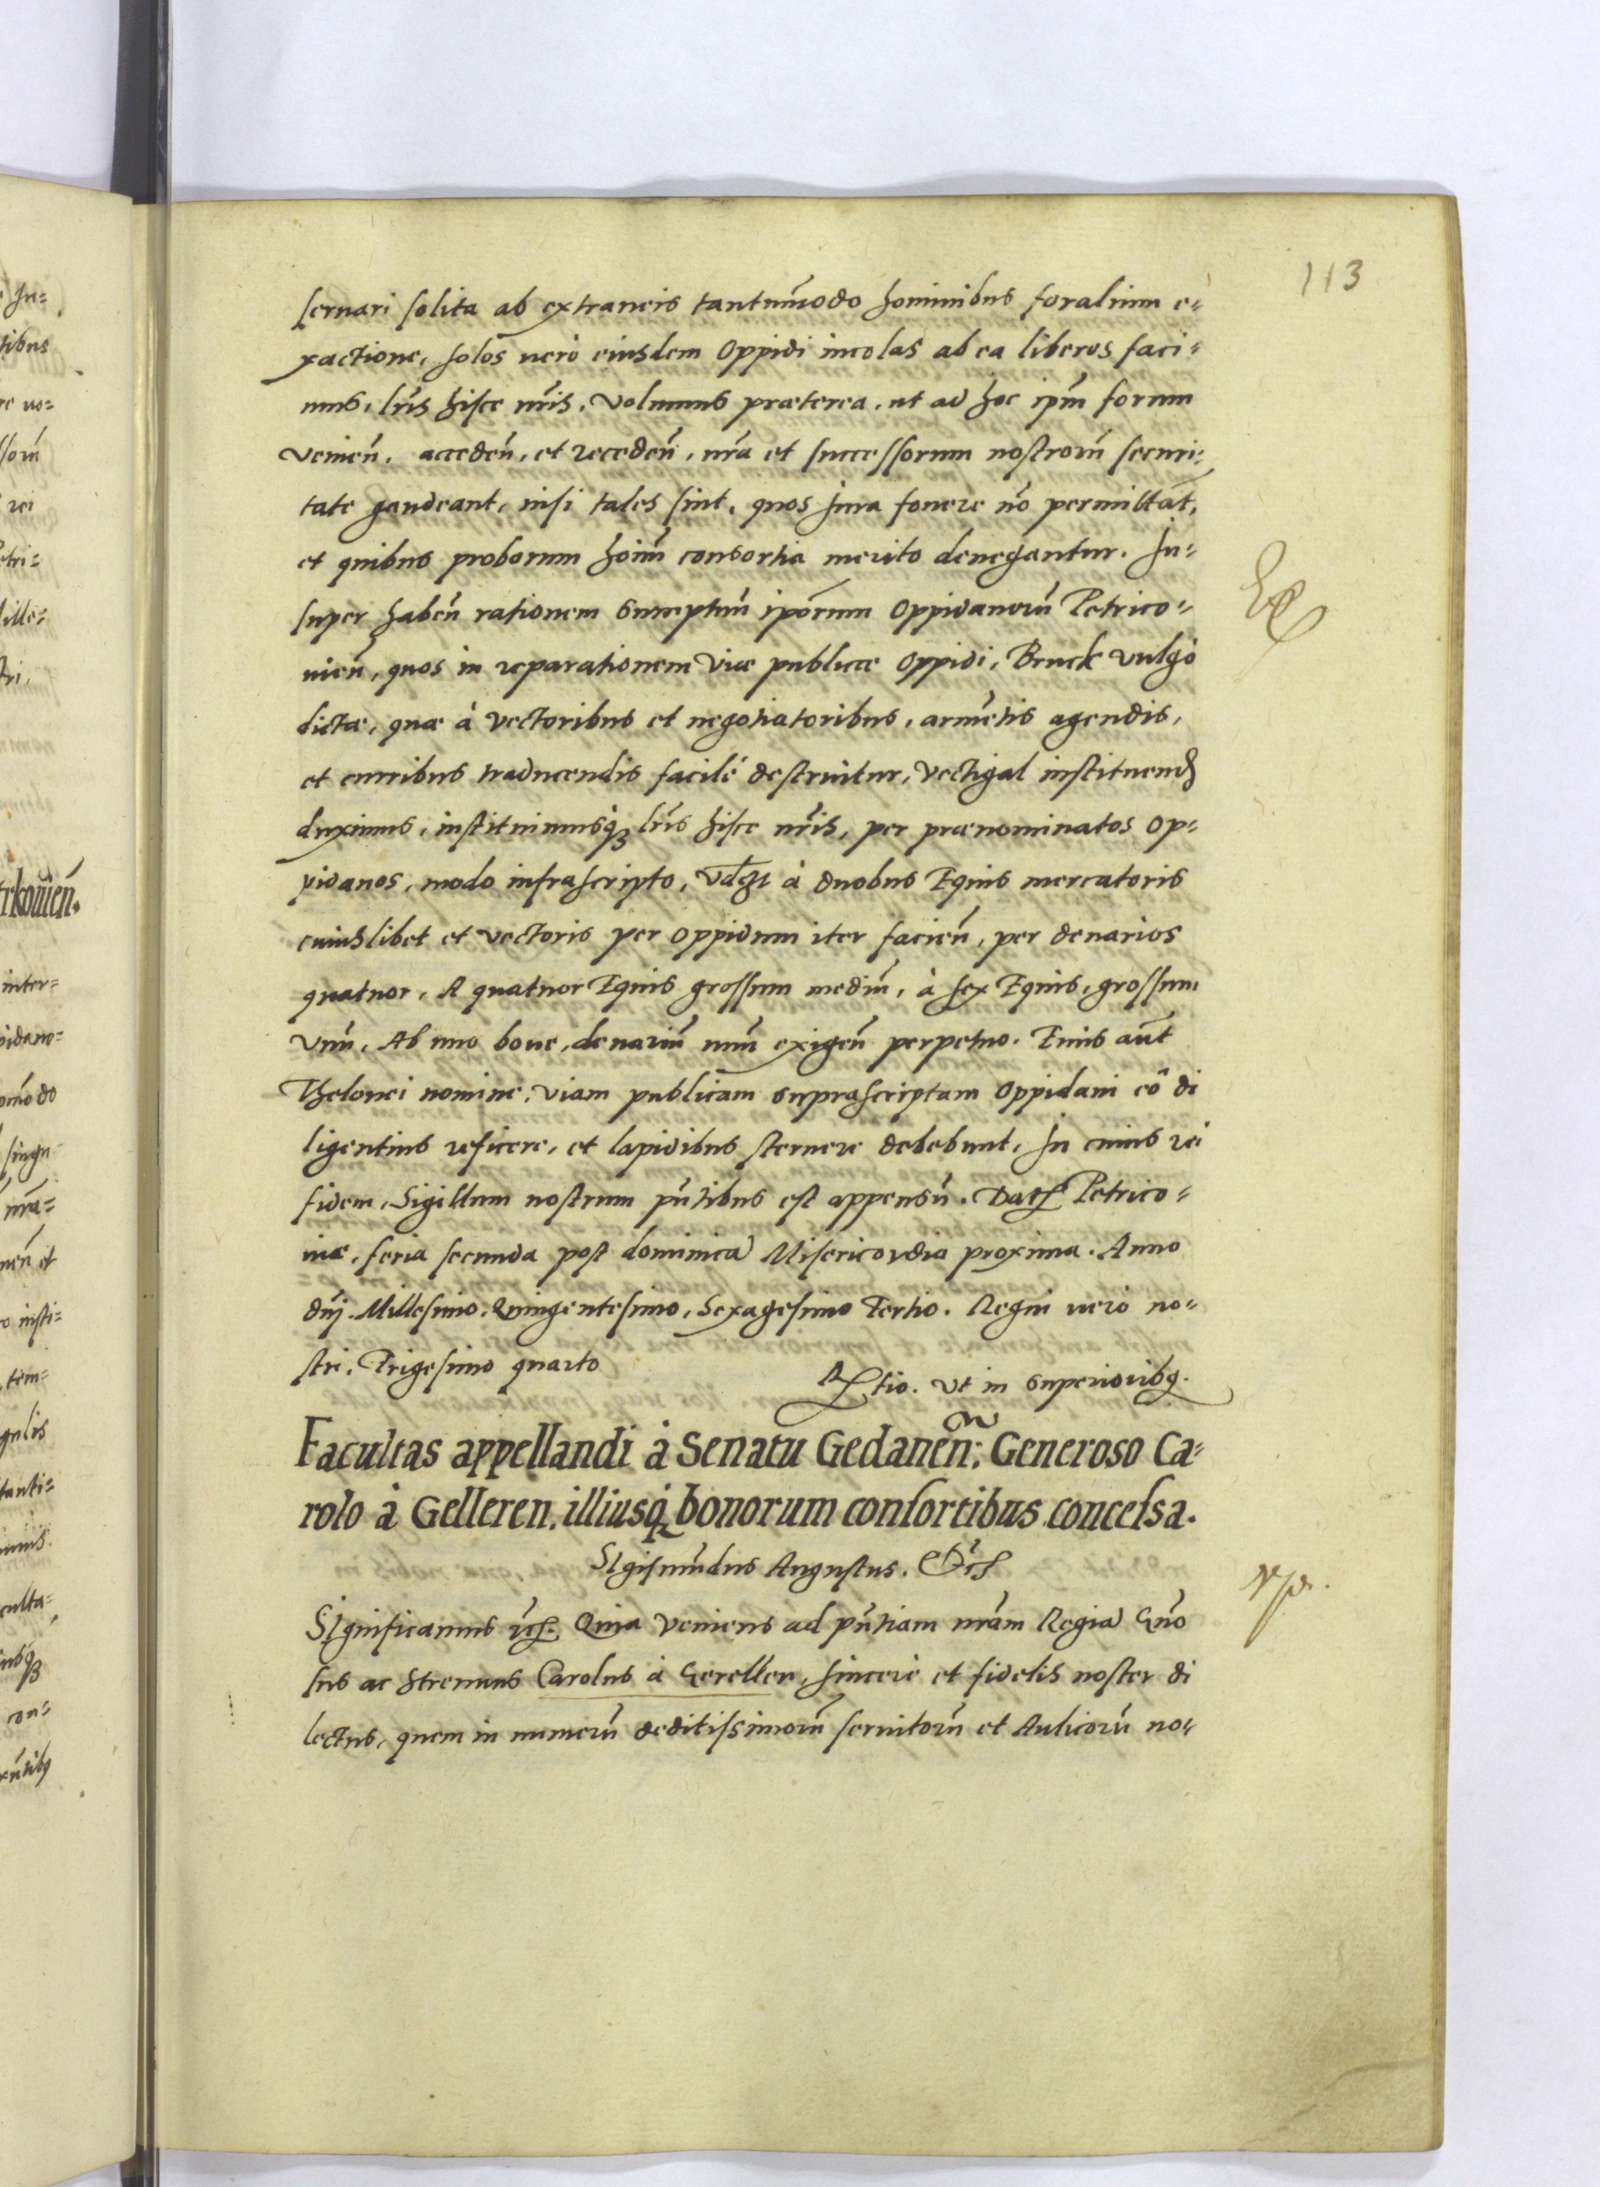 113
seruari solita ab extraneis tantum̃modo hominibus foralium e-
xactione, solos uerò eiusdem Oppidi incolas ab ea liberos faci-
mus, lr̃is hisce nr̃is. Volumus præterea, ut ad hoc ip̃m forum
Venien̄. acceden̄, et receden̄, nr̃a et successorum nostrorũ securi-
tate gaudeant, nisi tales sint, quos jura fouere nõ permittãt,
et quibus proborum hoĩm consortia merito denegantur. In-
super haben̄ rationem sumptuũ ip̃orum Oppidanorũ Petrico-
uien̄, quos in reparationem Viæ publicæ Oppidi, Bruck vulgò
dictæ, quæ à Vectoribus et negotiatoribus, armẽtis agendis,
et curribus traducendis facilè destruitur, Vectigal instituend̃
duximus, instituimusq́ꝫ lr̃is hisce nr̃is, per prænominatos Op-
pidanos, modo infrascripto, Vdelt à duobus Equis mercatoris
cuiuslibet et Vectoris per Oppidum iter facien̄, per denarios
quatuor, A quatuor Equis grossum mediũ, à sex Equis, grossum
Vnũ, Ab uno boue, denariũ unũ exigen̄ perpetuo. Euis aũt
Thelonei nomine, viam publicam suprascriptam Oppidani eò di
ligentius reficere, et lapidibus sternere debebunt. In cuius rei
fidem, Sigillum nostrum pñtibus est appensũ. Dat̃ Petrico-
uiæ, feria secunda post dominicã Misericordia proxima. Anno
dñj. Millesimo. Quingentesimo, Sexagesimo Tertio. Regni uero no-
stri. Trigesimo quarto
Rltio. Vt in superioribꝫ.
Facultas appellandi à Senatu Gedanen̄: Generoso Ca-
rolo à Gelleren. illiusq́ꝫ bonorum consortibus concessa.
Sigismũdus Augustus. Etc
Significamus etc. Quia Veniens ad pñtiam nr̃am Regiã Gño
sus ac Strenuus Carolus à Gereller, sincerè et fidelis noster di
lectus, quem in numerũ deditissimorũ seruitorũ et Aulicorũ no-